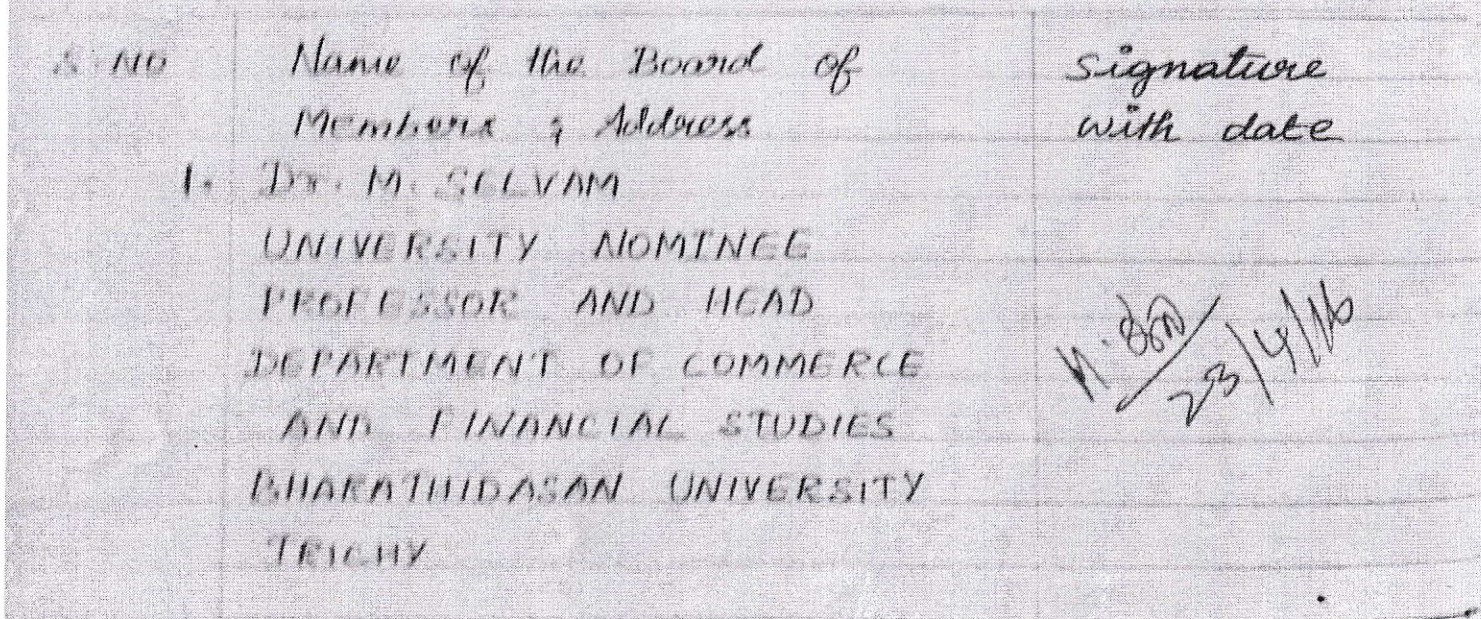 S.NO Name of the Board of Signature
Members & Address with date
1. Dr. M. SELVAM
UNIVERSITY NOMINEE
PROFESSOR AND HEAD
DEPARTMENT OF COMMERCE
AND FINANCIAL STUDIES
BHARATHIDASAN UNIVERSITY
TRICHY
23/4/16